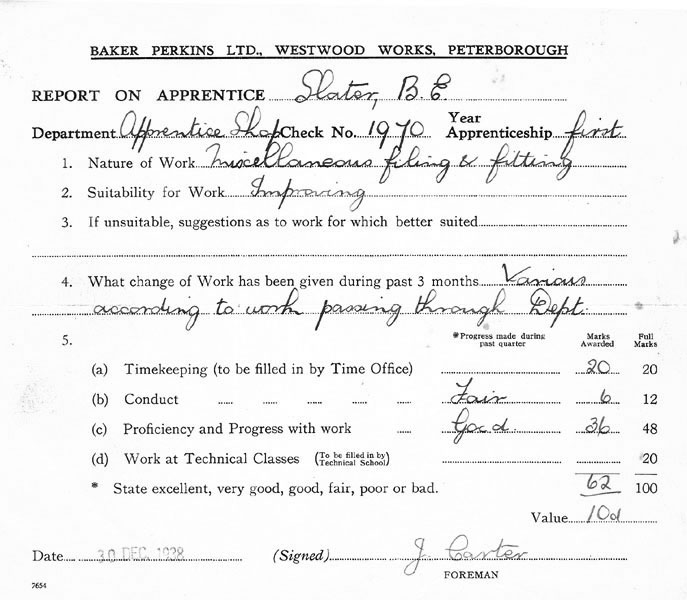 BAKER PERKINS LTD., WESTWOOD WORKS, PETERBOROUGH
REPORT ON APPRENTICE Slater, B.E.
Department Apprentice Shop Check No. 1970 Year Apprenticeship first
1. Nature of Work Miscellaneous filing & fitting
2. Suitability for Work Improving
3. If unsuitable, suggestions as to work for which better suited
4. What change of Work has been given during past 3 months Various
according to work passing through Dept.
5. *Progress made during past quarter Marks Awarded Full Marks
(a) Timekeeping (to be filled in by Time Office) 20 20
(b) Conduct Fair 6 12
(c) Proficiency and Progress with work Good 36 48
(d) Work at Technical Classes (To be filled in by Technical School) 20
* State excellent, very good, good, fair, poor or bad. 62 100
Value 10d
Date 30 DEC. 1938 (Signed) J. Carter
FOREMAN
7654